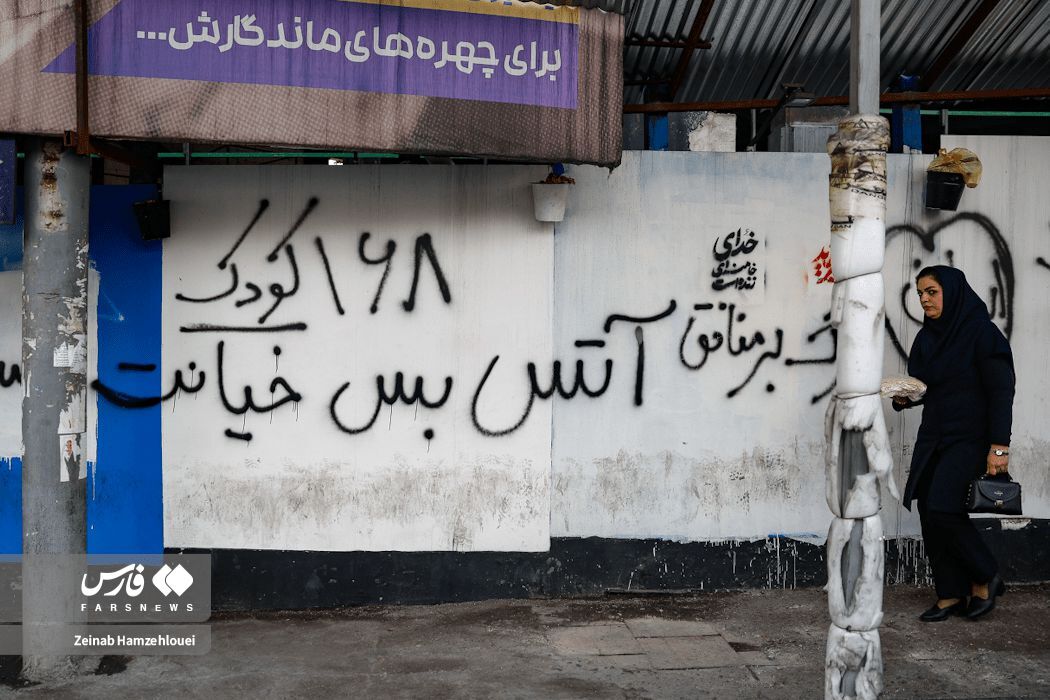 برای چهره‌های ماندگارش...
۱۶۸ کودک
خدای
خامنه‌ای
زنده است
بر منافق
آتس بس خیانت
فارس
FARSNEWS
Zeinab Hamzehlouei